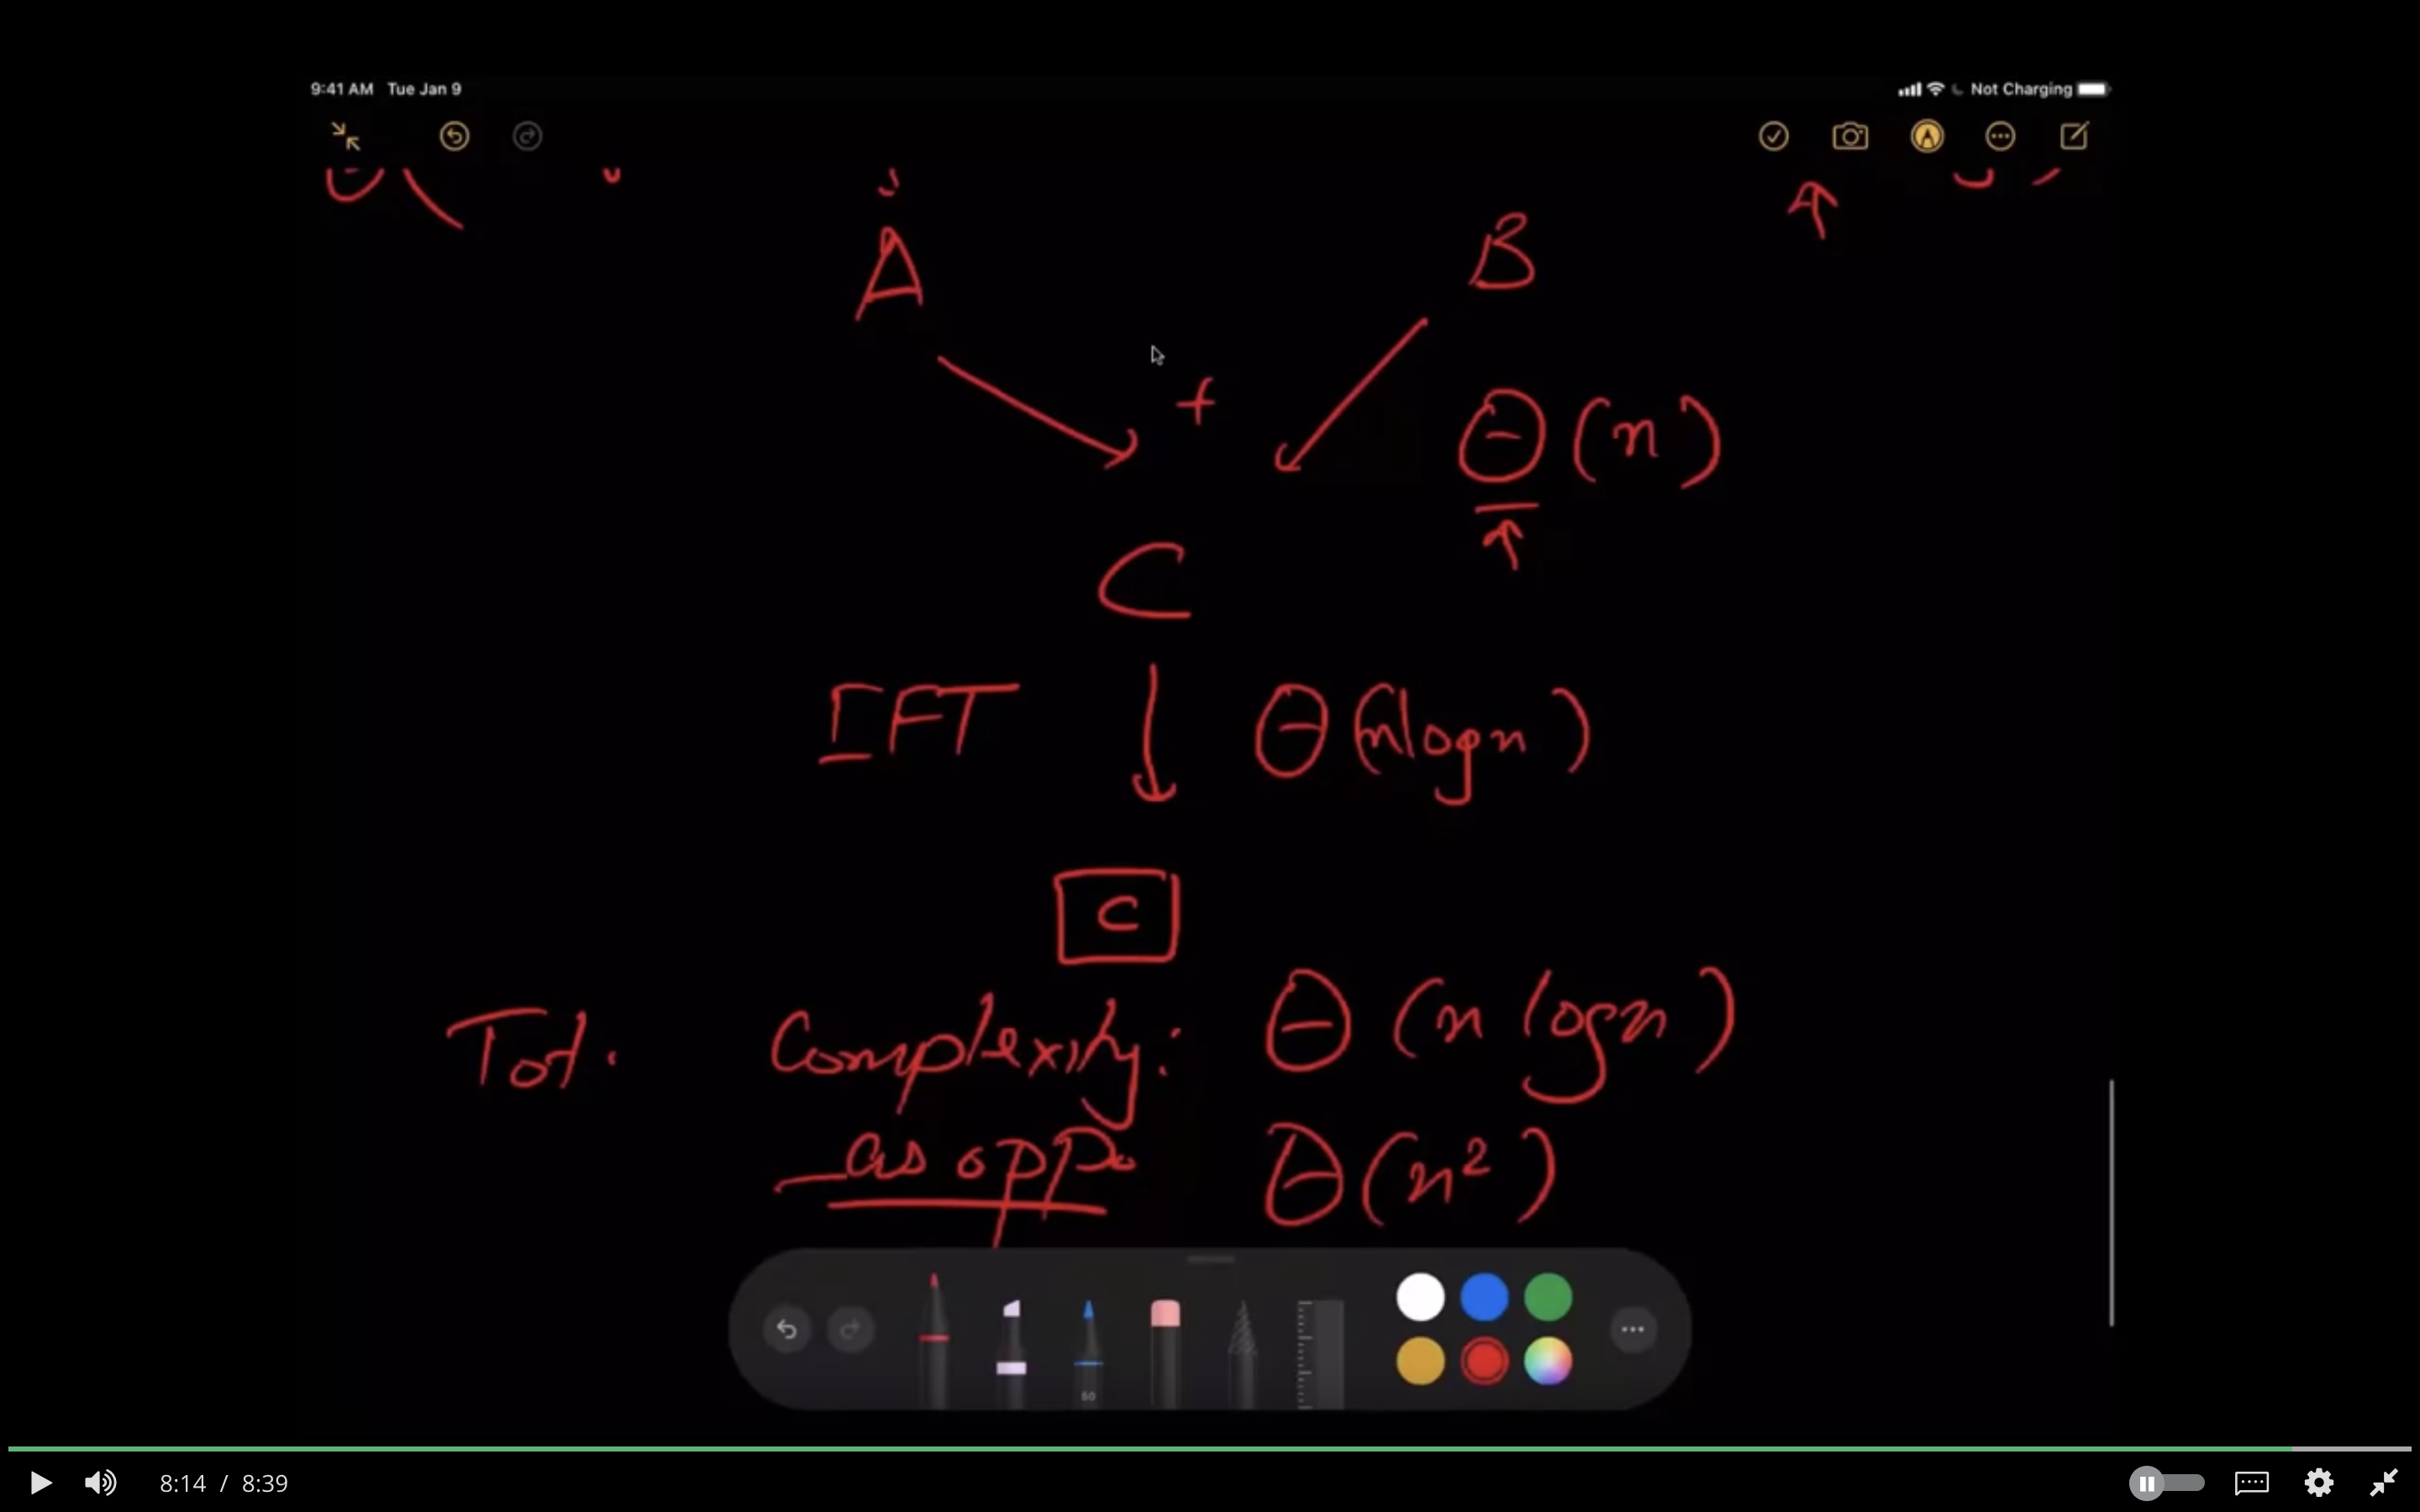 9:41 AM Tue Jan 9
Not Charging
A B
+
Θ(n)
C
IFT Θ(nlogn)
c
Tot. Complexity: Θ(n logn)
as oppo Θ(n²)
50
8:14 / 8:39